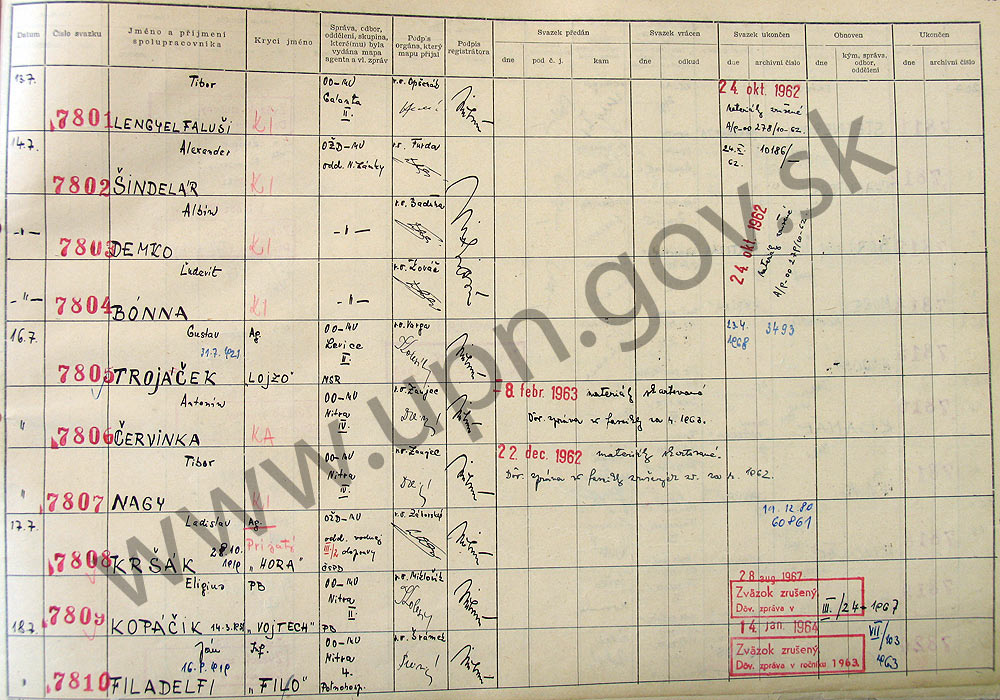 Datum
Číslo svazku
Jméno a příjmení spolupracovníka
Krycí jméno
Správa, odbor, oddělení, skupina, které(mu) byla vydána mapa agenta a vl. zpráv
Podpis orgána, který mapu přijal
Podpis registrátora
Svazek předán
dne
pod č. j.
kam
Svazek vrácen
dne
odkud
Svazek ukončen
dne
archivní číslo
Obnoven
dne
kým, správa, odbor, oddělení
Ukončen
dne
archivní číslo
13.7.
7801
Tibor
LENGYELFALUŠI
KI
OO-MV
Galanta
II.
24. okt. 1962
materiály zrušené
A/p-00 278/10-62.
14.7.
7802
Alexander
ŠINDELÁR
KI
OŽD-MV
odd. N. Zámky
v.s. Furda
24.X.
62.
10186/-
-"-
7803
Albín
DEMKO
KI
-"-
24. okt. 1962
materiály zrušené
A/p-00 278/10-62.
-"-
7804
Ľudevít
BÓNNA
KI
-"-
v.s. Kováč
16.7.
7805
Gustav
31.7.1921
TROJÁČEK
Ag.
"LOJZO"
OO-MV
Levice
II.
v.s. Varga
23.4.
1968
3493
"
7806
Antonín
ČERVINKA
KA
OO-MV
Nitra
IV.
v.s. Zaujec
-8. febr. 1963
materiály skartované
Dův. zpráva v
1963.
"
7807
Tibor
NAGY
KI
OO-MV
Nitra
IV.
v.s. Zaujec
22 dec. 1962
materiály skartované.
Dův. zpráva v
1962.
17.7.
7808
Ladislav
28.10.
1919
KRŠÁK
Ag.
"HORA"
OŽD-MV
odd. vodnej
III/2 dopravy
ČSPD
11.12.80
60861
7809
Eligius
KOPAČIK
PB
"VOJTECH"
OO-MV
Nitra
II
PB
v.s. Miklošik
28 aug. 1967
Zväzok zrušený.
Dôv. zpráva v
III./24-1967
18.7.
"
7810
Ján
FILADELFI
"FILO"
OO-MV
Nitra
4.
Polnohosp.
v.s. Šrámek
14. jan. 1964
Zväzok zrušený.
Dôv. zpráva v ročníku 1963.
VII/103
1963
www.upn.gov.sk